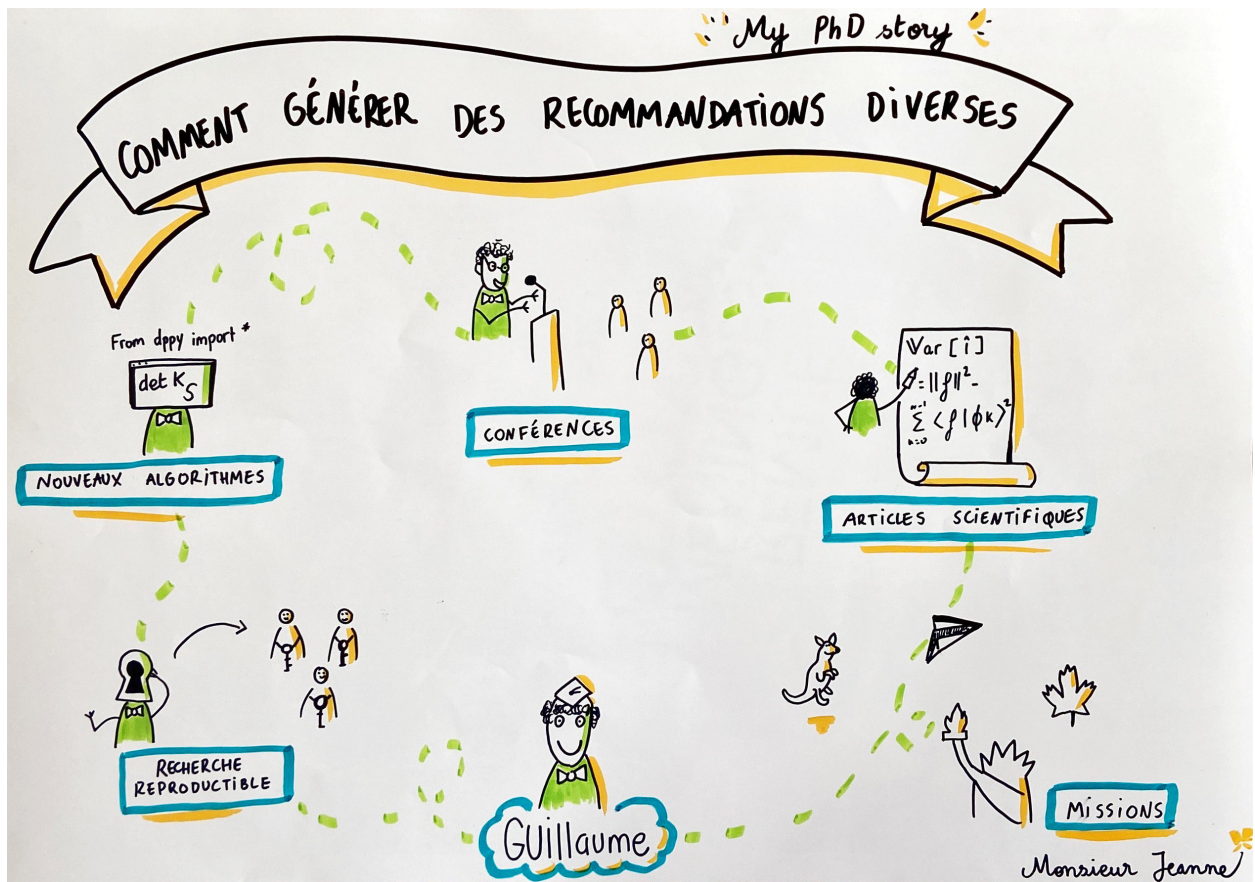 My PhD story
COMMENT GÉNÉRER DES RECOMMANDATIONS DIVERSES
From dppy import *
det K_S
NOUVEAUX ALGORITHMES
CONFÉRENCES
Var [î]
= ||f||² -
n-1
Σ <f|ϕk>²
k=0
ARTICLES SCIENTIFIQUES
RECHERCHE
REPRODUCTIBLE
GUILLAUME
MISSIONS
Monsieur Jeanne